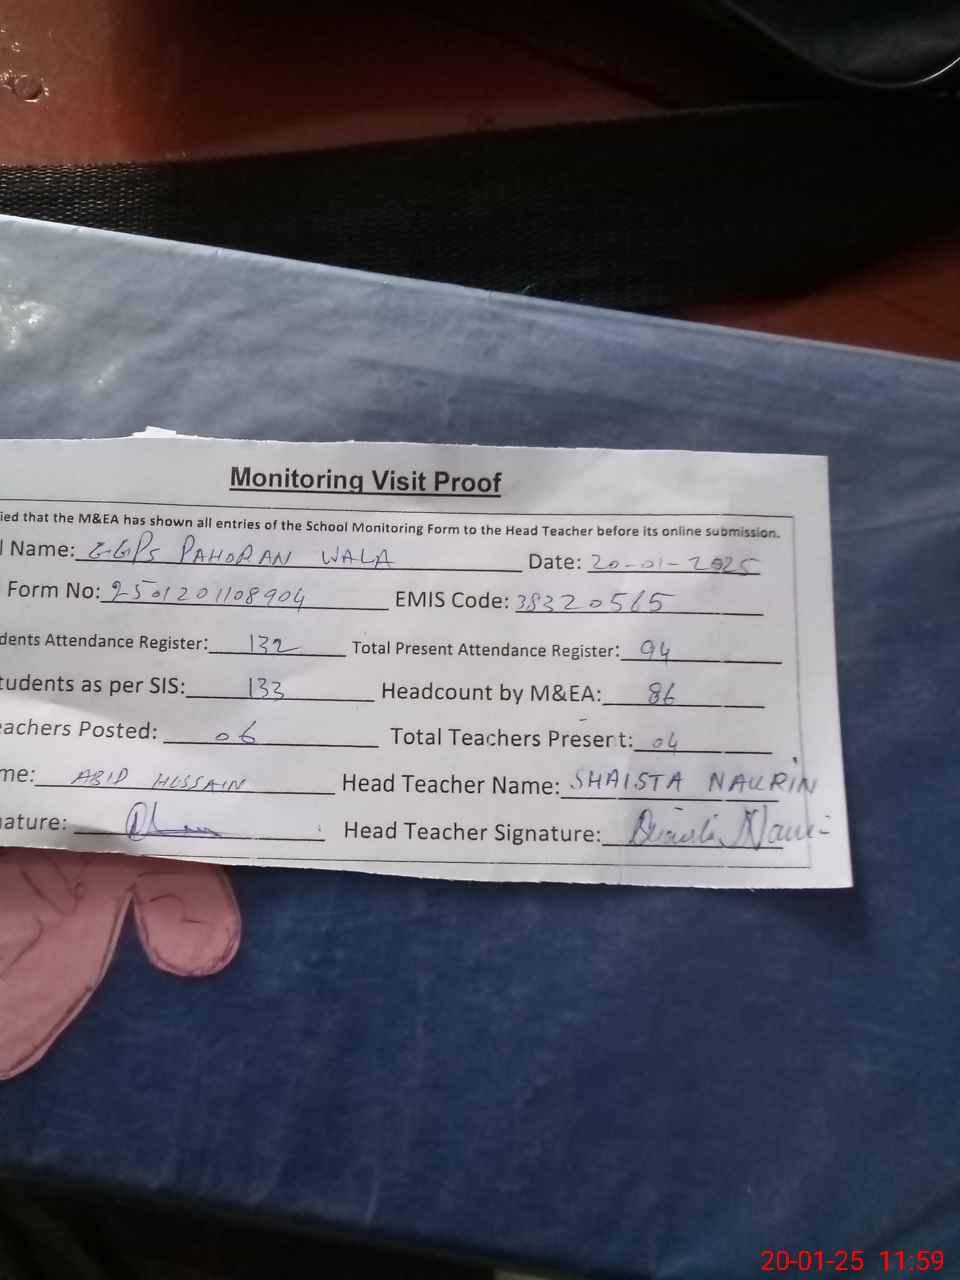 Monitoring Visit Proof
ied that the M&EA has shown all entries of the School Monitoring Form to the Head Teacher before its online submission.
l Name: GGPS PAHORAN WALA Date: 20-01-2025
Form No: 2501201108904 EMIS Code: 38320565
dents Attendance Register: 132 Total Present Attendance Register: 94
tudents as per SIS: 133 Headcount by M&EA: 86
eachers Posted: 06 Total Teachers Present: 04
me: ABID HUSSAIN Head Teacher Name: SHAISTA NAURIN
nature: Head Teacher Signature:
20-01-25 11:59